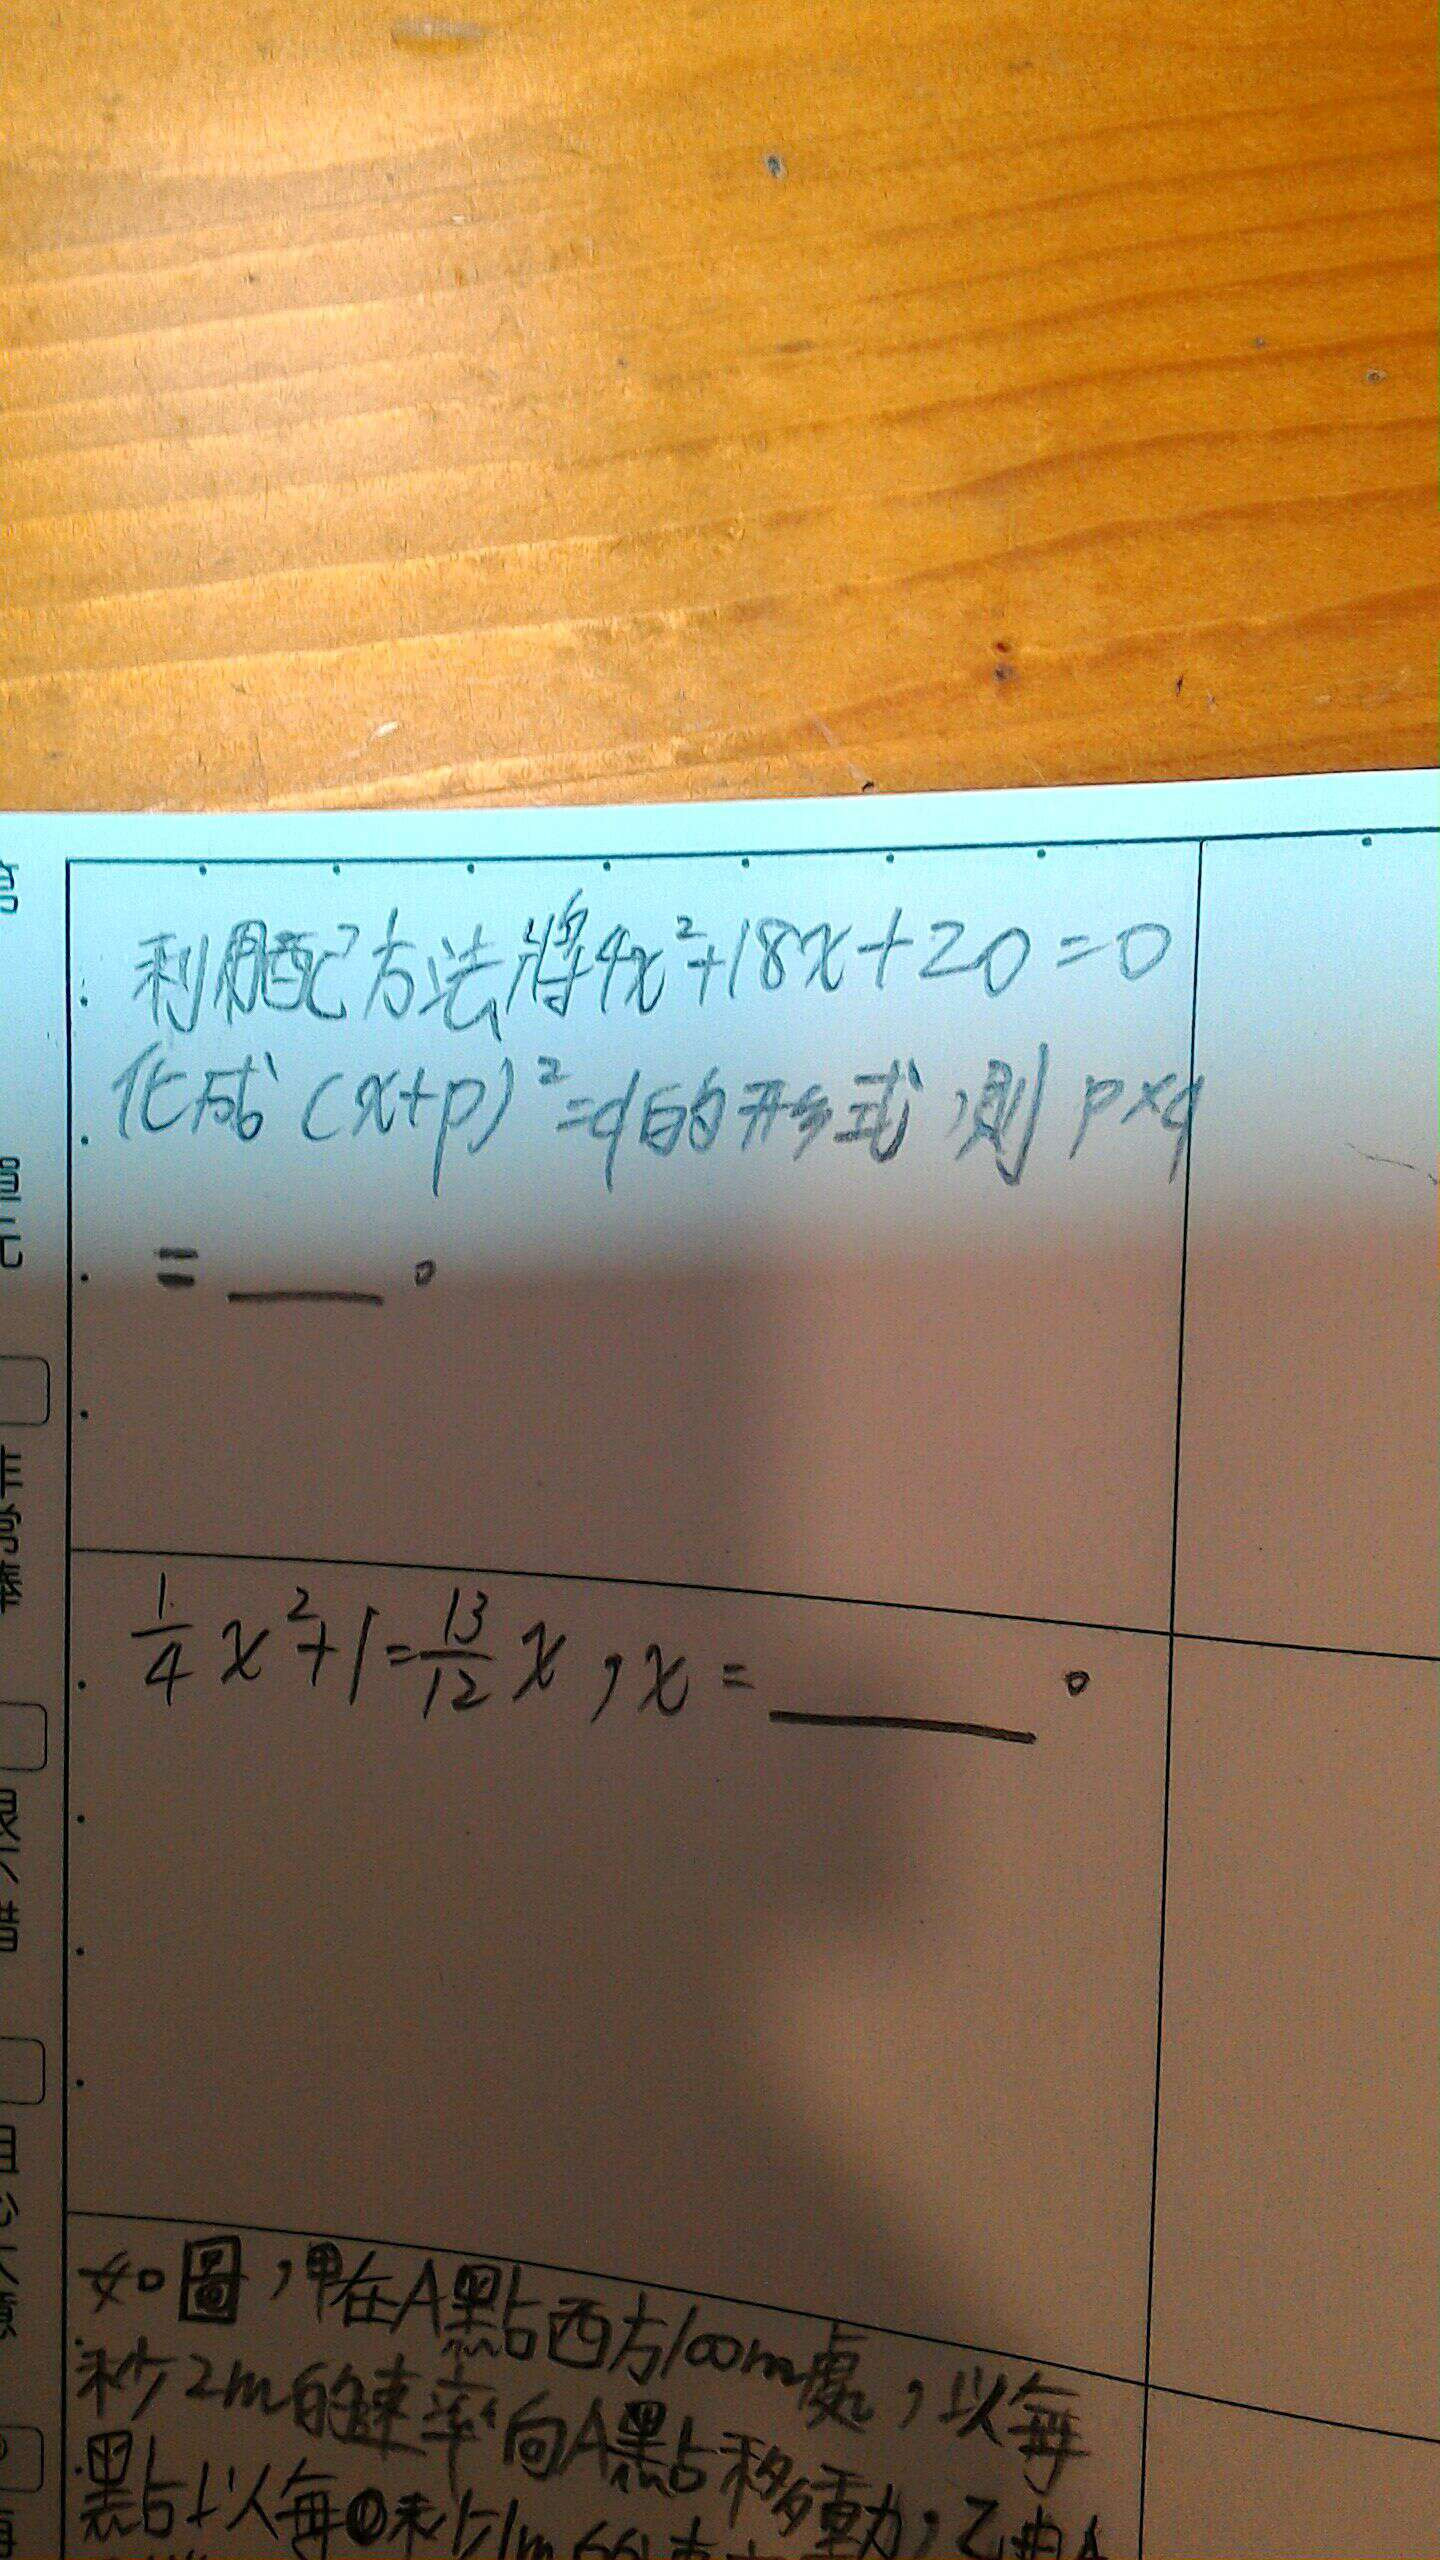 利用配方法將4x²+18x+20=0
化成(x+p)²=q的形式,則p×q
=____。
1/4 x²+1=13/12 x,x=____。
如圖,甲在A點西方100m處,以每
秒2m的速率向A點移動,乙由A
點以每秒1m的